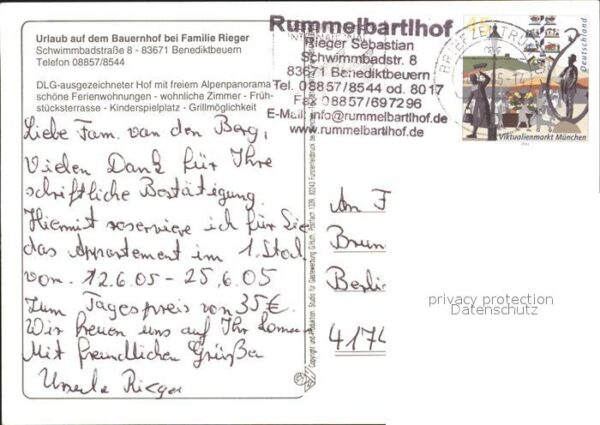 Urlaub auf dem Bauernhof bei Familie Rieger
Schwimmbadstraße 8 - 83671 Benediktbeuern
Telefon 08857/8544
DLG-ausgezeichneter Hof mit freiem Alpenpanorama
schöne Ferienwohnungen - wohnliche Zimmer - Früh-
stücksterrasse - Kinderspielplatz - Grillmöglichkeit
Rummelbartlhof
Rieger Sebastian
Schwimmbadstr. 8
83671 Benediktbeuern
Tel. 08857/8544 od. 8017
Fax 08857/697296
E-Mail: info@rummelbartlhof.de
www.rummelbartlhof.de
BRIEFZENTRUM
45
Deutschland
Viktualienmarkt München
Liebe Fam. van den Berg,
Vielen Dank für Ihre
schriftliche Bestätigung.
Hiermit reserviere ich für Sie
das Appartement im 1. Stock
vom. 12.6.05 - 25.6.05
Zum Tagespreis von 35€.
Wir freuen uns auf Ihr Kommen
Mit freundlichen Grüßen
Ursula Rieger
An F
Brun
Berli
4174
privacy protection
Datenschutz